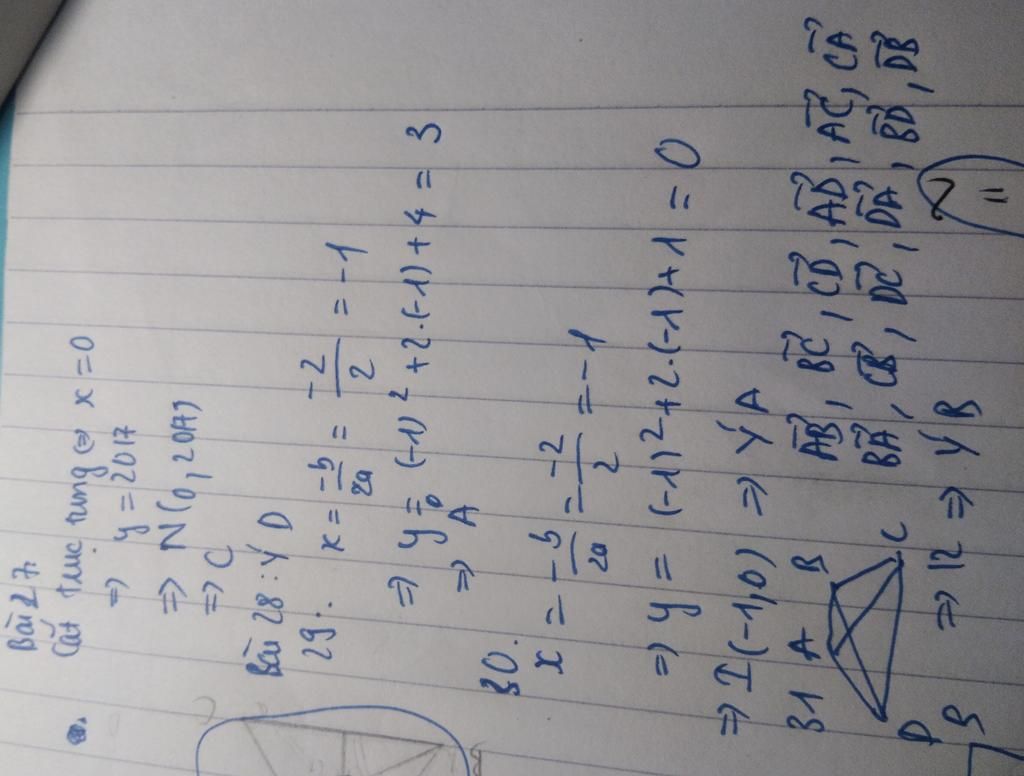 Bài 27.
Cắt trục tung ⇔ x = 0
⇒ y = 2017
⇒ N(0, 2017)
⇒ C
Bài 28: Ý D
29. x = -b/2a = -2/2 = -1
⇒ y = (-1)² + 2.(-1) + 4 = 3
⇒ A
30.
x = -b/2a = -2/2 = -1
⇒ y = (-1)² + 2.(-1) + 1 = 0
⇒ I(-1, 0) ⇒ Ý A
31 A B C D
AB, BC, CD, AD, AC, CA
BA, CB, DC, DA, BD, DB
⇒ 12 ⇒ Ý B
B